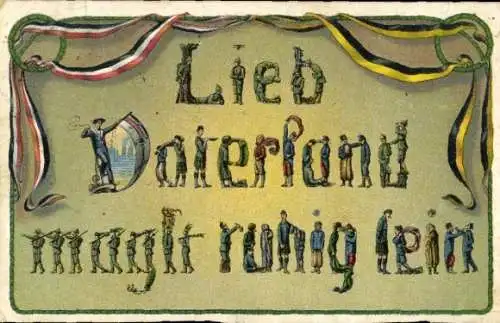 Lieb
Vaterland
magst ruhig sein